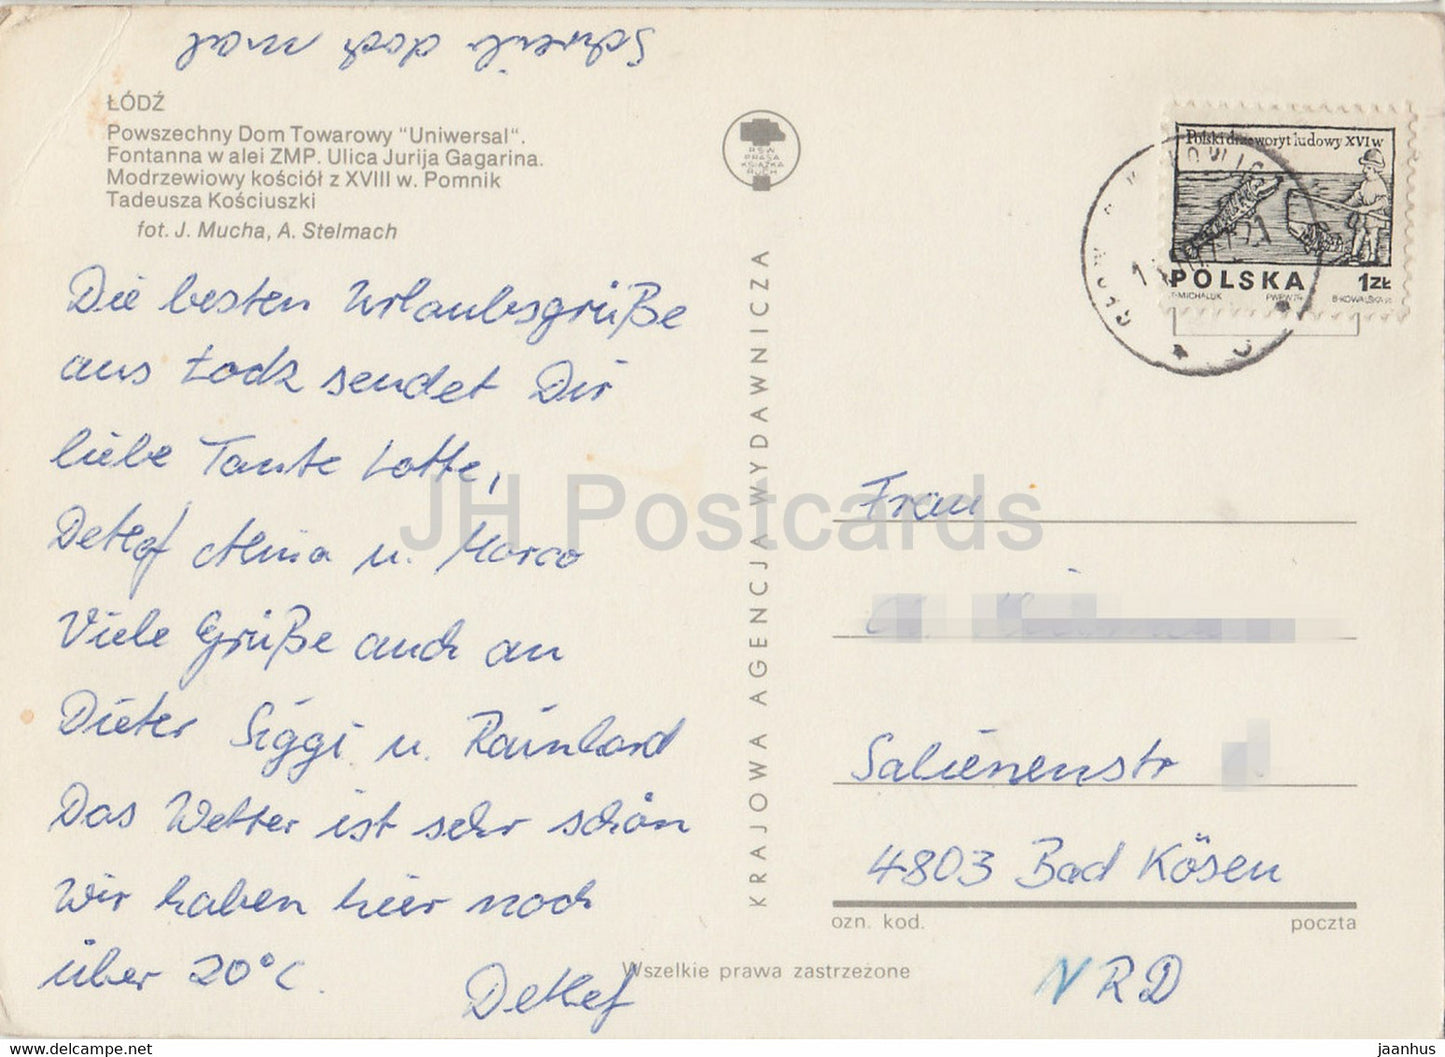 Schreib doch mal
ŁÓDŹ
Powszechny Dom Towarowy "Uniwersal".
Fontanna w alei ZMP. Ulica Jurija Gagarina.
Modrzewiowy kościół z XVIII w. Pomnik
Tadeusza Kościuszki
fot. J. Mucha, A. Stelmach
Die besten Urlaubsgrüße
aus Łodz sendet Dir
liebe Tante Lotte,
Detlef u. Marco
Viele Grüße auch an
Dieter Siggi u. Rainhard
Das Wetter ist sehr schön
Wir haben hier noch
über 20°C.
Detlef
RSW
PRASA
KSIĄŻKA
RUCH
KRAJOWA AGENCJA WYDAWNICZA
Wszelkie prawa zastrzeżone
Polski drzeworyt ludowy XVI w
POLSKA 1ZŁ
T·MICHALUK PWPW 74 B·KOWALSKA
Frau
Salienenstr
4803 Bad Kösen
ozn. kod. poczta
NRD
JH Postcards
oldthing.com
jaanhus